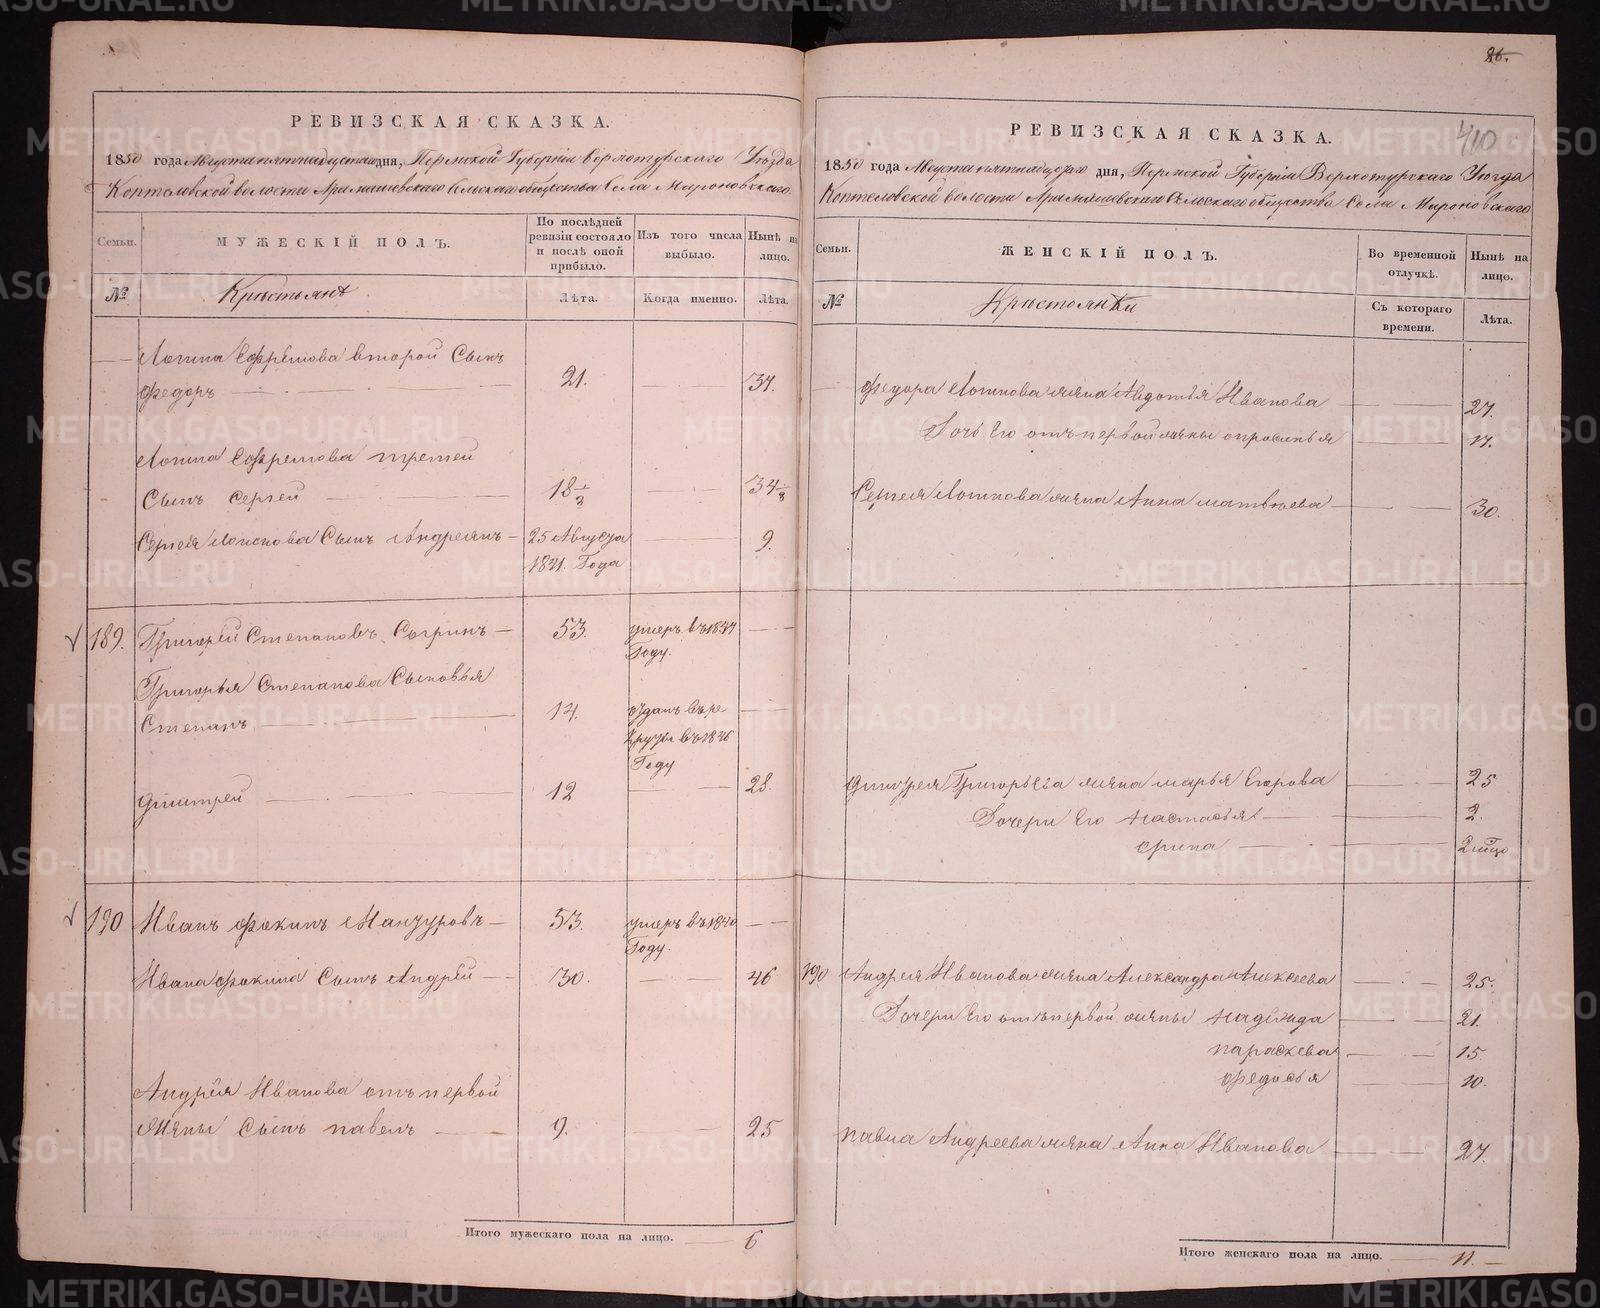 РЕВИЗСКАЯ СКАЗКА.
1850 года Августа пятнадцатаго дня, Пермской Губерніи Верхотурскаго Уѣзда
Коптеловской волости Арамашевскаго Сельскаго общества Села Мироновскаго
Семьи.
МУЖЕСКІЙ ПОЛЪ.
По послѣдней ревизіи состояло и послѣ оной прибыло.
Изъ того числа выбыло.
Нынѣ на лицо.
№
Крестьянѣ
Лѣта.
Когда именно.
Лѣта.
Логина Ефремова второй Сынъ
Федоръ 21. 37.
Логина Ефремова третей
Сынъ Сергей 18 1/2 34 1/2
Сергея Логинова Сынъ Андреянъ 25 Августа 9.
1841. Года
189. Григорей Степановъ Согринъ 53. умеръ въ 1847
Году.
Григорья Степанова Сыновья
Степанъ 14. отданъ въ ре
круты въ 1846
Году
Дмитрей 12 28.
190 Иванъ Фокинъ Манзуровъ 53. умеръ въ 1840
Году.
Ивана Фокина Сынъ Андрей 30. 46
Андрея Иванова отъ первой
Жены Сынъ павелъ 9. 25
Итого мужескаго пола на лицо. 6
86.
410
РЕВИЗСКАЯ СКАЗКА.
1850 года Августа пятнадцатаго дня, Пермской Губерніи Верхотурскаго Уѣзда
Коптеловской волости Арамашевскаго Сельскаго общества Села Мироновскаго
Семьи.
ЖЕНСКІЙ ПОЛЪ.
Во временной отлучкѣ.
Нынѣ на лицо.
№
Крѣстоянки
Съ котораго времени.
Лѣта.
Федора Логинова жена Авдотья Иванова 27.
Дочь Его отъ первой жены опросинья 17.
Сергея Логинова жена Анна матвѣева 30.
Дмитрея Григорьева жена марья Егорова 25
Дочери Его Настасья 2.
орина
190 Андрея Иванова жена Александра Алексеева 25.
Дочери Его отъ первой жены Надежда 21.
параскева 15.
Федосья 10.
павла Андреева жена Анна Иванова 27.
Итого женскаго пола на лицо. 11.
METRIKI.GASO-URAL.RU